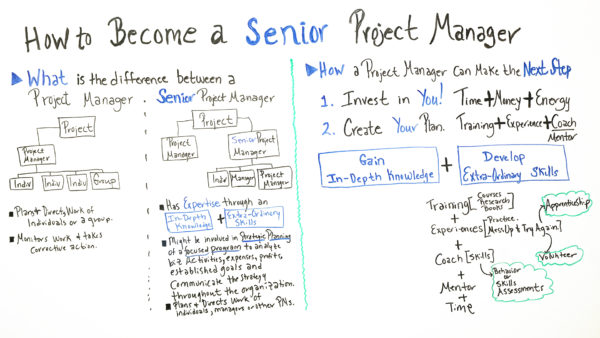 How to Become a Senior Project Manager
What is the difference between a
Project Manager . Senior Project Manager
Project
Project
Manager
Indiv
Indiv
Indiv
Group
Plans & Directs Work of
Individuals or a group.
Monitors Work & takes
corrective action.
Project
Project
Manager
Senior Project
Manager
Indiv
Manager
Project
Manager
Has Expertise through an
In-Depth
Knowledge
+
Extra-Ordinary
Skills
Might be involved in Strategic Planning
of a focused program to analyze
biz activities, expenses, profits,
established goals and
communicate the strategy
throughout the organization.
Plans & Directs Work of
individuals, managers or other PMs.
How a Project Manager Can Make the Next Step
1. Invest in You! Time + Money + Energy
2. Create Your Plan. Training + Experience + Coach
Mentor
Gain
In-Depth Knowledge
+
Develop
Extra-Ordinary Skills
Training [Courses
Research
Books
+
Experiences [Practice.
Mess Up & Try Again]
+
Coach [Skills]
+
Mentor
+
Time
Apprenticeship
Volunteer
Behavior
or
Skills
Assessments